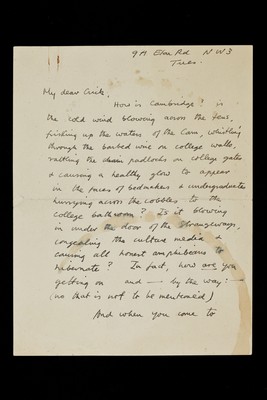 9A Elm Rd N W 3
Tues.
My dear Crick,
How is Cambridge? is
the cold wind blowing across the fens,
frishing up the waters of the Cam, whistling
through the barbed wire on college walls,
rattling the chain padlocks on college gates
& causing a healthy glow to appear
in the faces of bedmakers & undergraduates
hurrying across the cobbles to the
college bathroom? Is it blowing
in under the door of the Strangeways,
congealing the culture media &
causing all honest amphibians to
hibernate? In fact, how are you
getting on and — by the way: —
(no that is not to be mentioned)
And when you come to